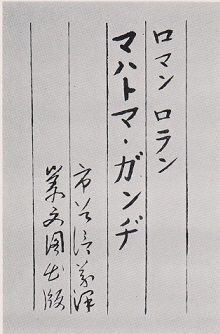 ロマン ロラン
マハトマ・ガンヂ
市谷信義譯
叢文閣出版